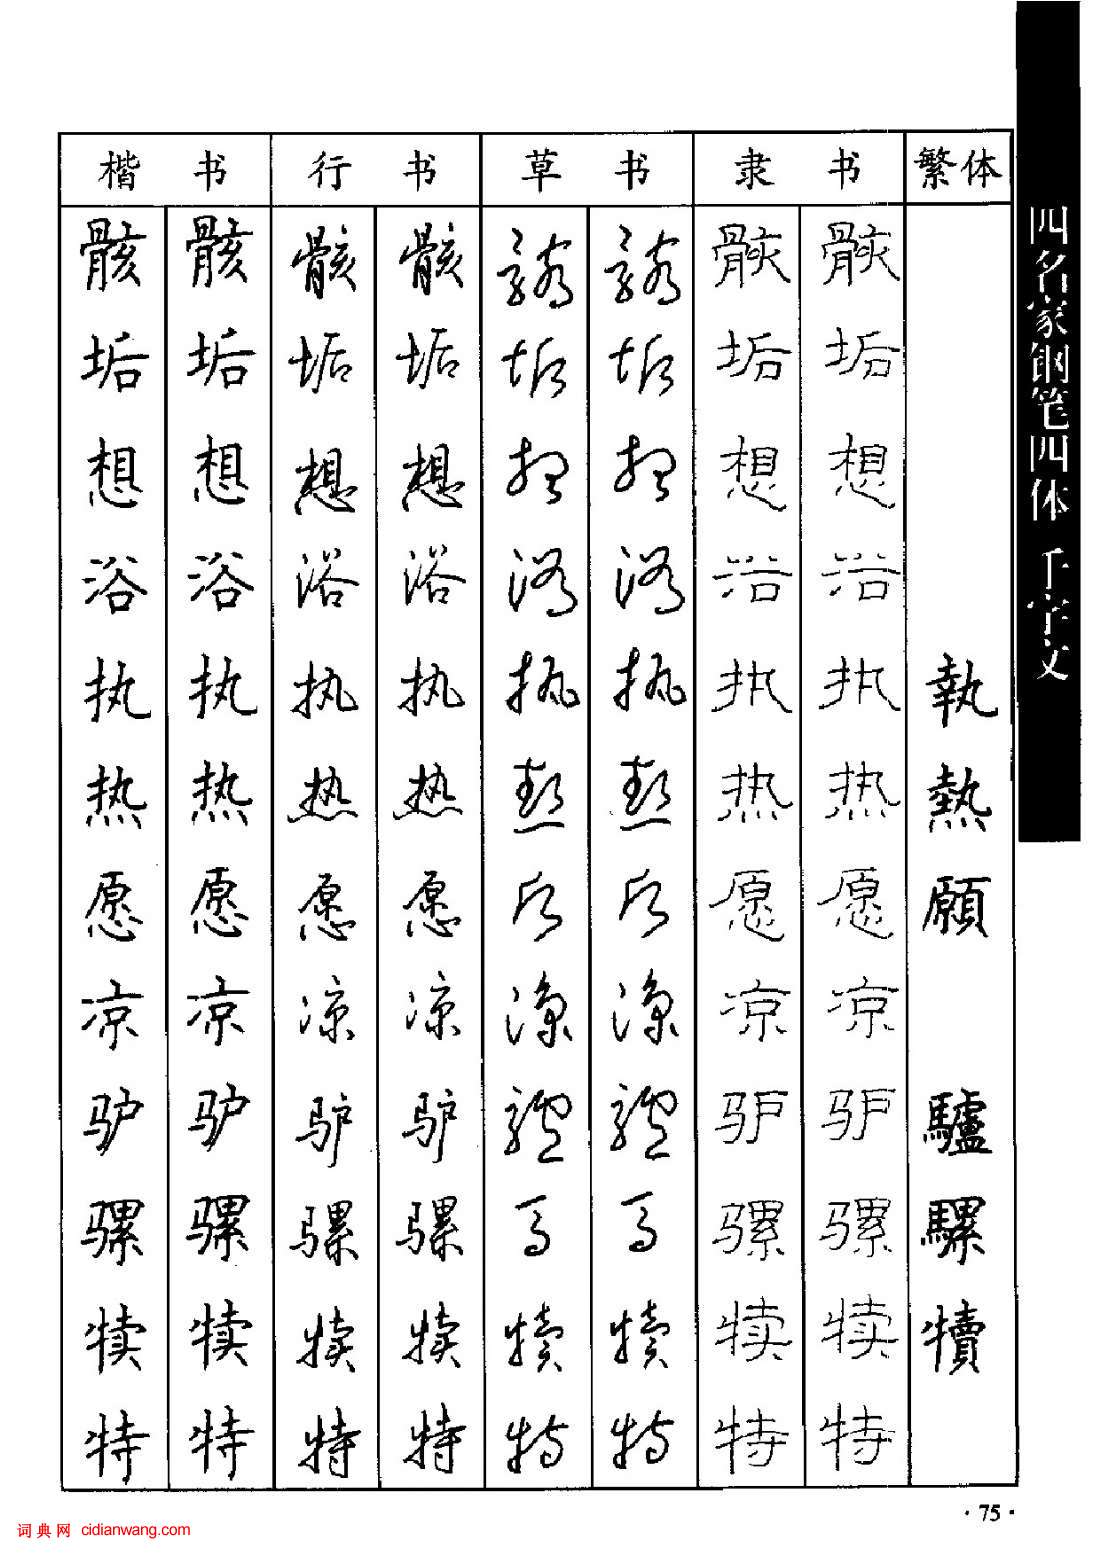 楷书 行书 草书 隶书 繁体
骸 骸 骸 骸 骸 骸 骸 骸
垢 垢 垢 垢 垢 垢 垢 垢
想 想 想 想 想 想 想 想
浴 浴 浴 浴 浴 浴 浴 浴
执 执 执 执 执 执 执 执 執
热 热 热 热 热 热 热 热 熱
愿 愿 愿 愿 愿 愿 愿 愿 願
凉 凉 凉 凉 凉 凉 凉 凉
驴 驴 驴 驴 驴 驴 驴 驴 驢
骡 骡 骡 骡 骡 骡 骡 骡 騾
犊 犊 犊 犊 犊 犊 犊 犊 犢
特 特 特 特 特 特 特 特
四名家钢笔四体 千字文
·75·
词典网 cidianwang.com